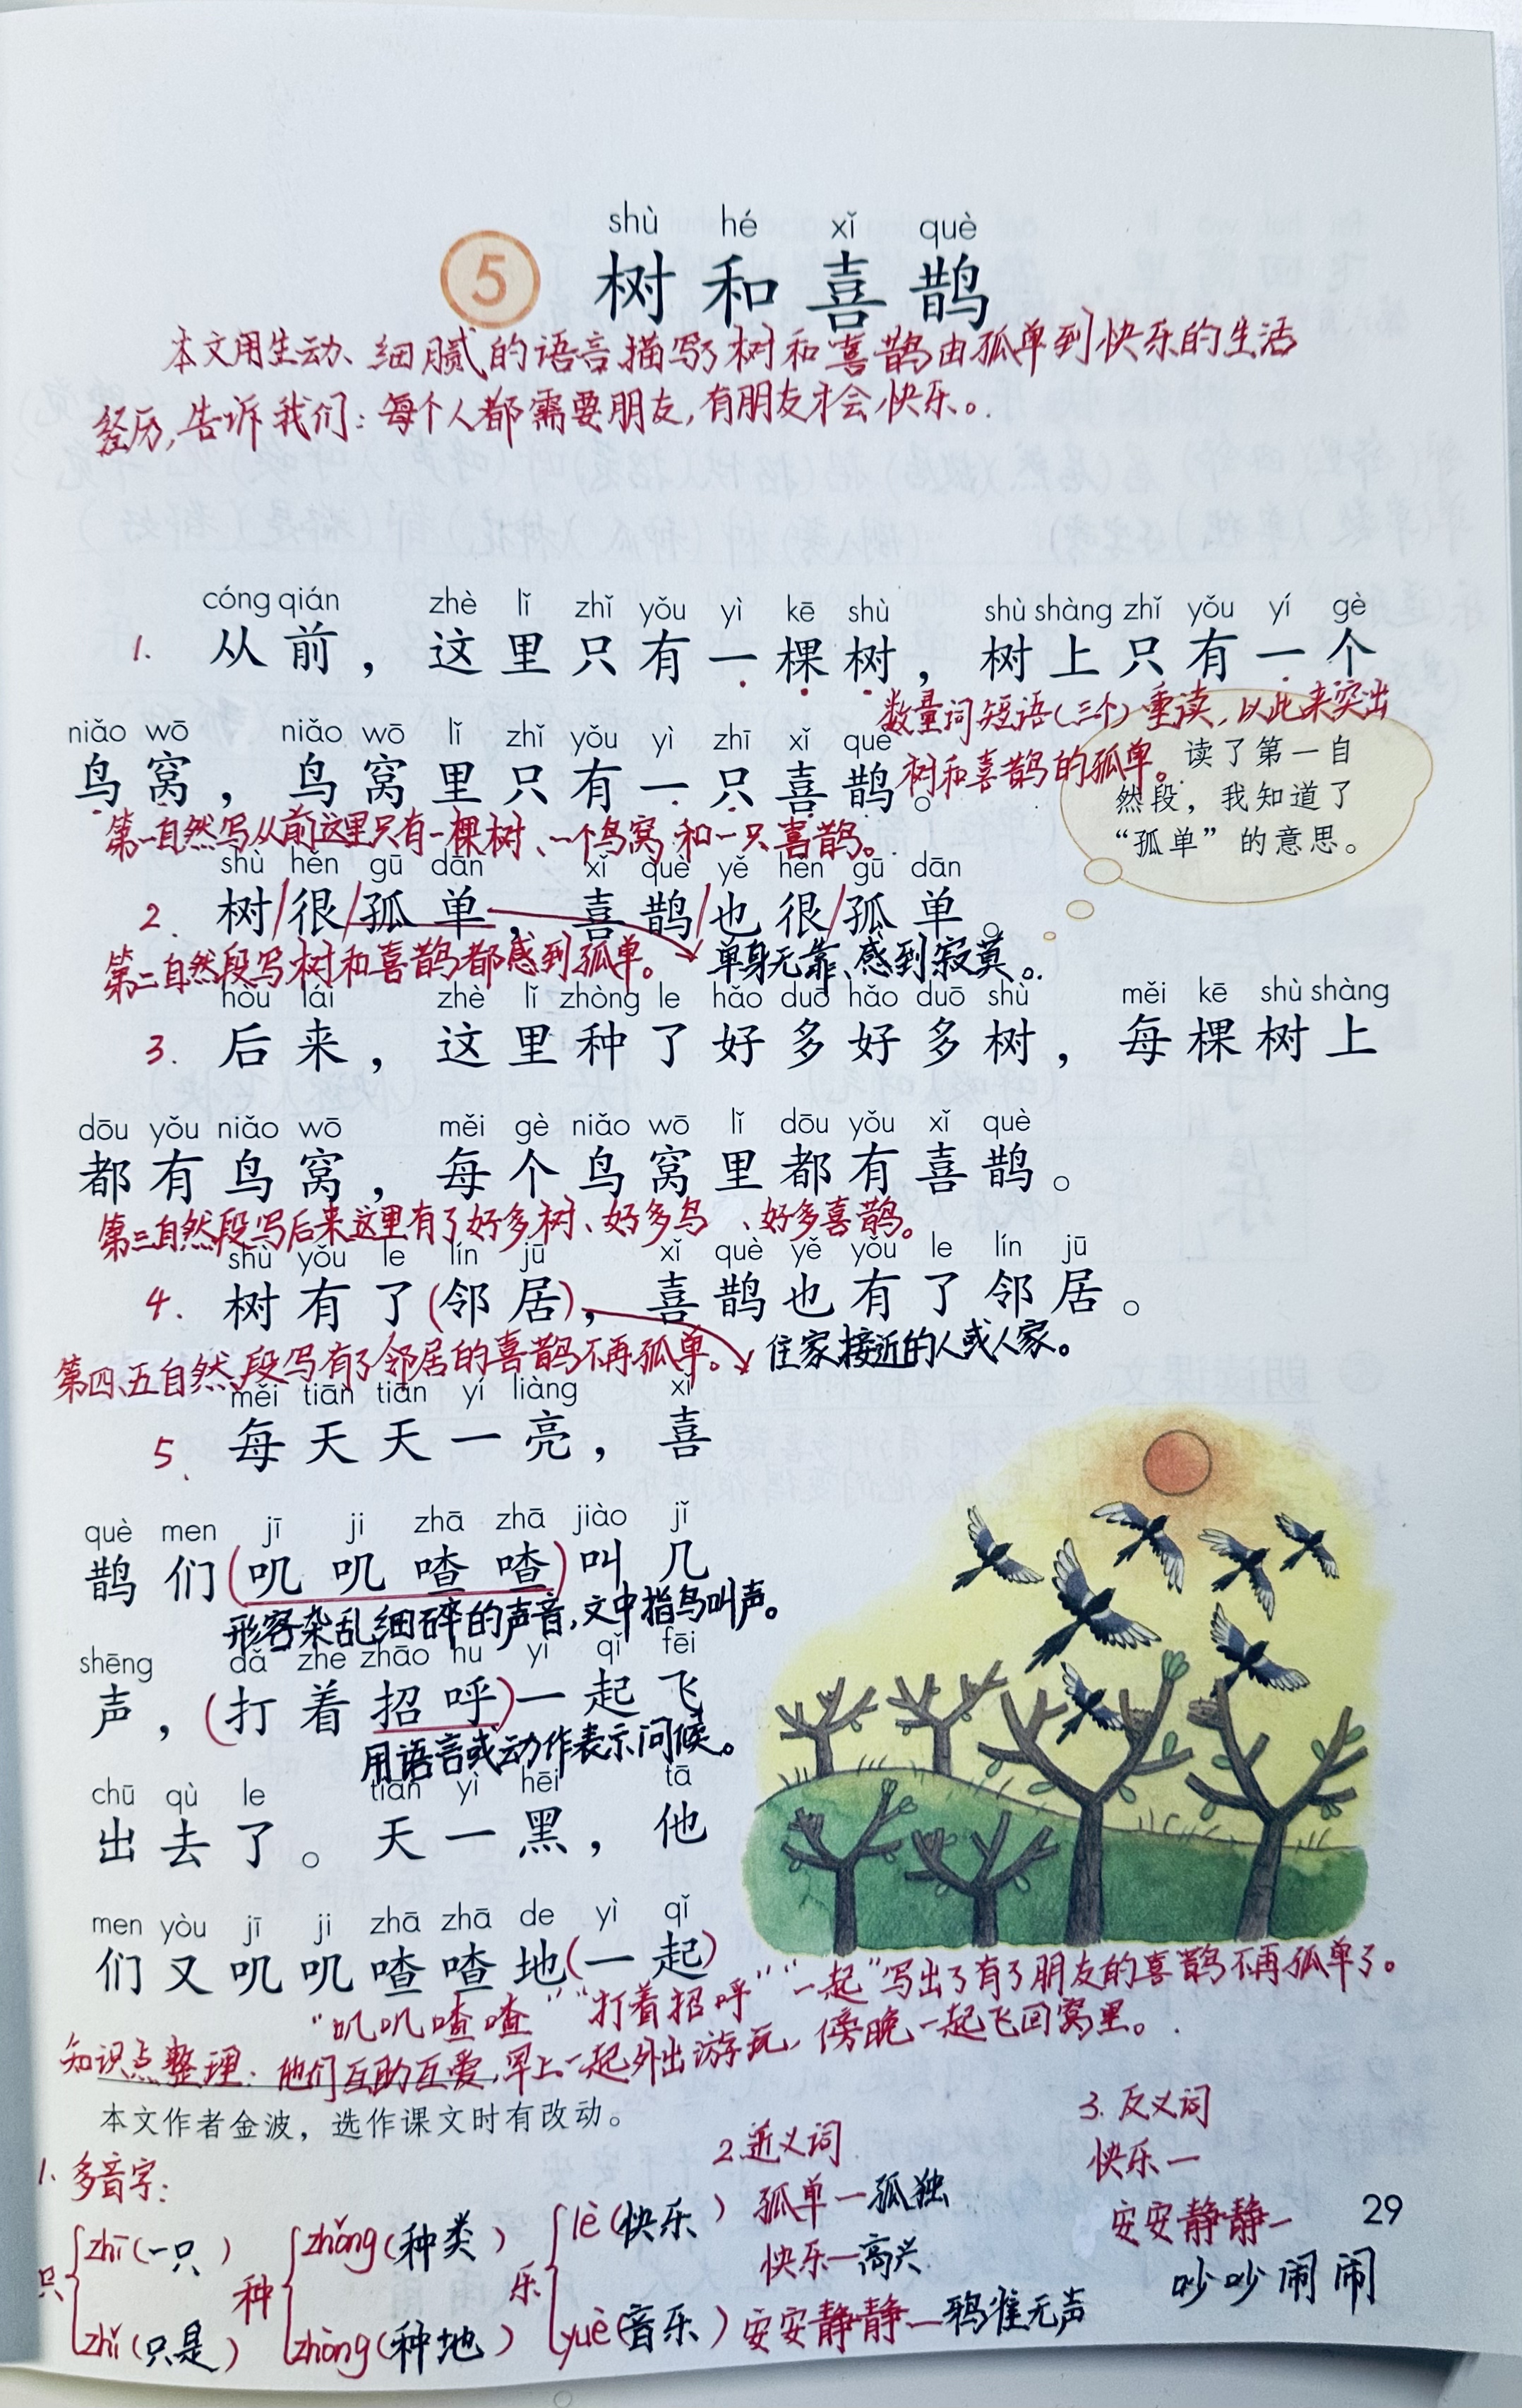 shù hé xǐ què
5 树和喜鹊
本文用生动、细腻的语言描写了树和喜鹊由孤单到快乐的生活
经历,告诉我们:每个人都需要朋友,有朋友才会快乐。
cóng qián zhè lǐ zhǐ yǒu yì kē shù shù shàng zhǐ yǒu yí gè
1. 从前,这里只有一棵树,树上只有一个
数量词短语(三个)重读,以此来突出
树和喜鹊的孤单。
niǎo wō niǎo wō lǐ zhǐ yǒu yì zhī xǐ què
鸟窝,鸟窝里只有一只喜鹊。
读了第一自
然段,我知道了
“孤单”的意思。
第一自然写从前这里只有一棵树、一个鸟窝和一只喜鹊。
shù hěn gū dān xǐ què yě hěn gū dān
2. 树/很/孤单,喜鹊/也很/孤单。
第二自然段写树和喜鹊都感到孤单。 单身无靠、感到寂寞。
hòu lái zhè lǐ zhòng le hǎo duō hǎo duō shù měi kē shù shàng
3. 后来,这里种了好多好多树,每棵树上
dōu yǒu niǎo wō měi gè niǎo wō lǐ dōu yǒu xǐ què
都有鸟窝,每个鸟窝里都有喜鹊。
第三自然段写后来这里有了好多树、好多鸟 、好多喜鹊。
shù yǒu le lín jū xǐ què yě yǒu le lín jū
4. 树有了(邻居),喜鹊也有了邻居。
第四、五自然段写有了邻居的喜鹊不再孤单。 住家接近的人或人家。
měi tiān tiān yí liàng xǐ
5、每天天一亮,喜
què men jī ji zhā zhā jiào jǐ
鹊们(叽叽喳喳)叫几
形容杂乱细碎的声音,文中指鸟叫声。
shēng dǎ zhe zhāo hu yì qǐ fēi
声,(打着招呼)一起飞
用语言或动作表示问候。
chū qù le tiān yì hēi tā
出去了。天一黑,他
men yòu jī ji zhā zhā de yì qǐ
们又叽叽喳喳地(一起)
“叽叽喳喳”“打着招呼”“一起”写出了有了朋友的喜鹊不再孤单了。
知识点整理:他们互助互爱,早上一起外出游玩,傍晚一起飞回窝里。
本文作者金波,选作课文时有改动。
1、多音字:
只 zhī(一只) zhǐ(只是)
种 zhǒng(种类) zhòng(种地)
乐 lè(快乐) yuè(音乐)
2.近义词
孤单—孤独
快乐—高兴
安安静静—鸦雀无声
3.反义词
快乐—
安安静静—
吵吵闹闹
29